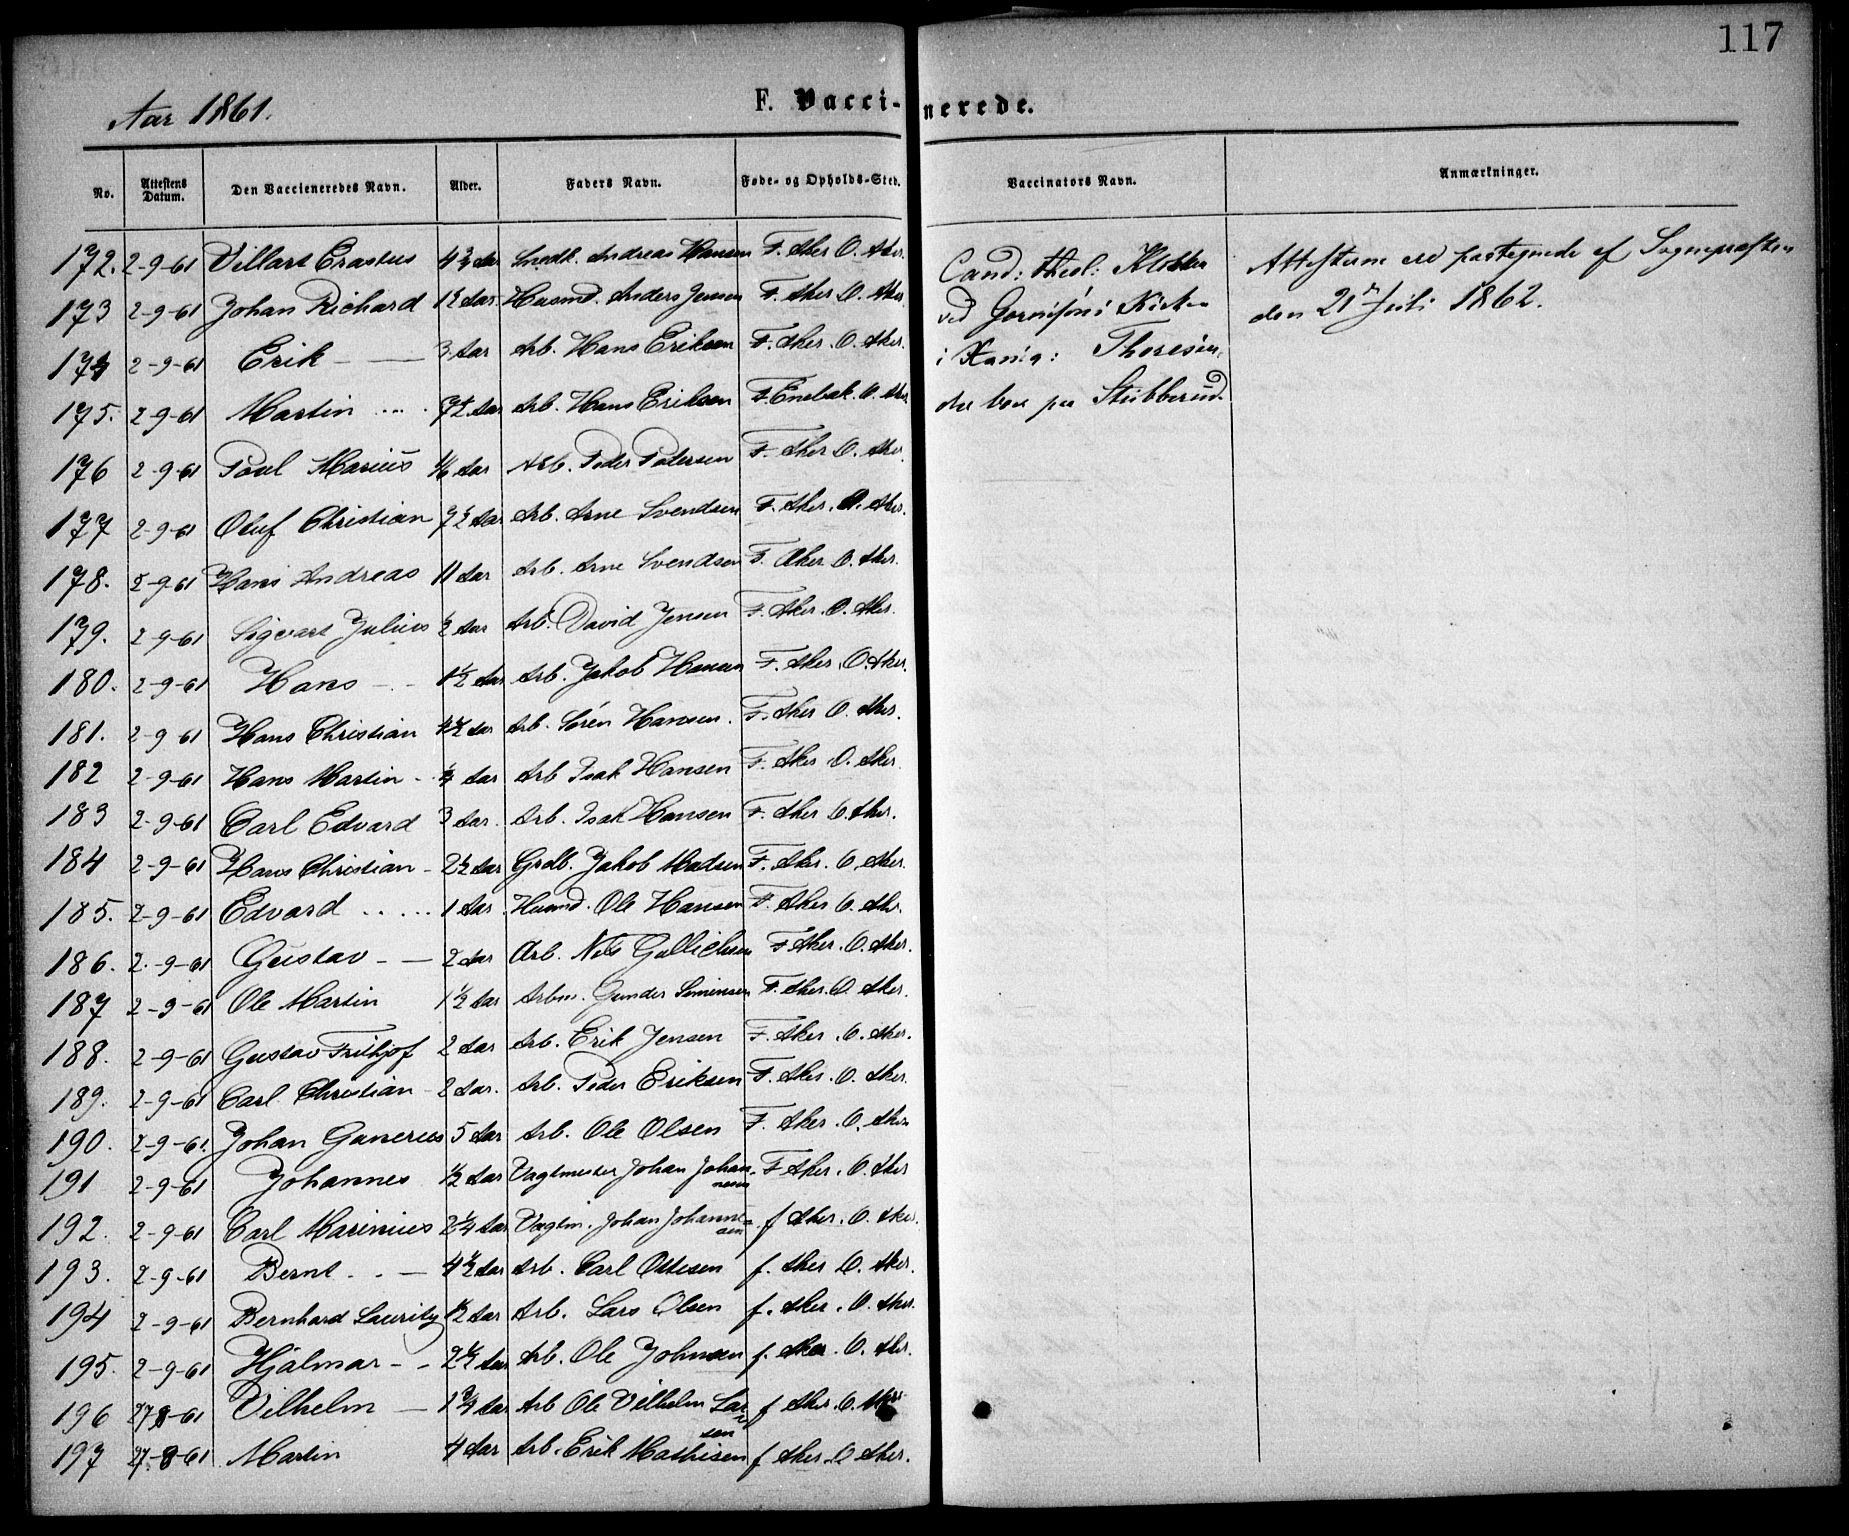 117
Aar 1861.
F. Vacci-nerede.
No. Attestens Datum. Den Vaccieneredes Navn. Alder. Faders Navn. Føde- og Opholds-Sted. Vaccinators Navn. Anmærkninger.
172. 2-9-61 Villart Erastus 4 3/4 Aar Snedk. Andreas Hansen F. Aker O. Aker. Cand: theol: Attesterne ere paategnede af Sognepræsten
173 2-9-61 Johan Richard 1 1/2 Aar. Husmd. Anders Jensen F. Aker O. Aker ved i den 21 Juli 1862.
174 2-9-61 Erik - — 3 Aar Arb. Hans Eriksen F. Aker. O. Aker. i Xania: Thoresen,
175. 2-9-61 Martin .... 7 1/2 Aar Arb. Hans Eriksen F. Enebak. O. Aker der boe paa Stubberud.
176 2-9-61 Paul Marius Aar Arb. Peder Pedersen F. Aker O. Aker.
177 2-9-61 Oluf Christian 7 1/2 Aar Arb. Arne Svendsen F. Aker. O. Aker.
178. 2-9-61 Hans Andreas 11 Aar Arb. Arne Svendsen F. Aker O. Aker.
179. 2-9-61 Sigvart Julius 1/2 Aar Arb. David Jensen F. Aker. O. Aker.
180. 2-9-61 Hans - - 1 1/2 Aar Arb. Jakob Hansen F. Aker. O. Aker.
181. 2-9-61 Hans Christian 4 1/2 Aar Arb. Sørén Hansen. F. Aker O. Aker.
182 2-9-61 Hans Martin - 1/4 Aar Arb Isak Hansen F. Aker O. Aker.
183 2-9-61 Carl Edvard 3 Aar. Arb. Isak Hansen F. Aker O. Aker.
184 2-9-61 Hans Christian - 2 1/2 Aar Grdb. Jakob Madsen F. Aker. O. Aker.
185. 2-9-61 Edvard ..... 1 Aar. Husmd. Ole Hansen F. Aker O. Aker.
186. 2-9-61 Gustav - — 2 Aar Arb. Nils Gullichsen F. Aker. O. Aker.
187 2-9-61 Ole Martin 1 1/2 Aar Arbm. Gunder Simensen F. Aker. O Aker.
188. 2-9-61 Gustav Frithjof 2 Aar Arb. Erik Jensen F. Aker. O. Aker.
189. 2-9-61 Carl Christian - 2 Aar. Arb. Peder Eriksen F. Aker. O. Aker.
190. 2-9-61. Johan Ganerius 5 Aar Arb. Ole Olsen F. Aker. O. Aker
191 2-9-61 Johannes 1/2 Aar Vagtmester Johan Johannesen F. Aker. O. Aker
192. 2-9-61 Carl Marinius 2 1/4 Aar Vagtm. Johan Johannesen f Aker. O. Aker.
193. 2-9-61 Bernt .. — 4 1/2 Aar Arb. Carl Ottesen f. Aker O. Aker.
194 2-9-61 Bernhard Lauritz 1/2 Aar Arb. Lars Olsen f. Aker. O. Aker.
195. 2-9-61 Hjalmar - - 2 1/2 Aar Arb. Ole Johnsen f. Aker. O. Aker.
196 27-8-61 Vilhelm — 1 3/4 Aar Arb Ole Vilhelm Larsen f Aker. O. Aker
197 27-8-61 Martin 4 Aar Arb. Erik Mathisen f Aker. O Aker.